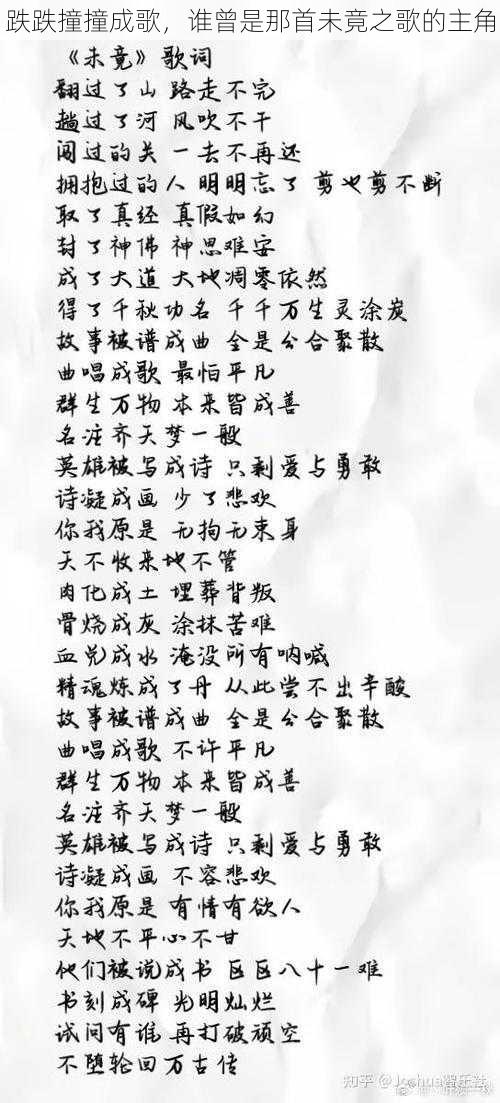 跌跌撞撞成歌，谁曾是那首未竟之歌的主角
《未竟》歌词
翻过了山 路走不完
趟过了河 风吹不干
闯过的关 一去不再还
拥抱过的人 明明忘了 剪也剪不断
取了真经 真假如幻
封了神佛 神思难安
成了大道 大地凋零依然
得了千秋功名 千千万生灵涂炭
故事被谱成曲 全是分合聚散
曲唱成歌 最怕平凡
群生万物 本来皆成善
名注齐天梦一般
英雄被写成诗 只剩爱与勇敢
诗凝成画 少了悲欢
你我原是 无拘无束身
天不收来地不管
肉化成土 埋葬背叛
骨烧成灰 涂抹苦难
血兑成水 淹没所有呐喊
精魂炼成了丹 从此尝不出辛酸
故事被谱成曲 全是分合聚散
曲唱成歌 不许平凡
群生万物 本来皆成善
名注齐天梦一般
英雄被写成诗 只剩爱与勇敢
诗凝成画 不容悲欢
你我原是 有情有欲人
天地不平心不甘
他们被说成书 区区八十一难
书刻成碑 光明灿烂
试问有谁 再打破顽空
不堕轮回万古传
知乎 @Joshua